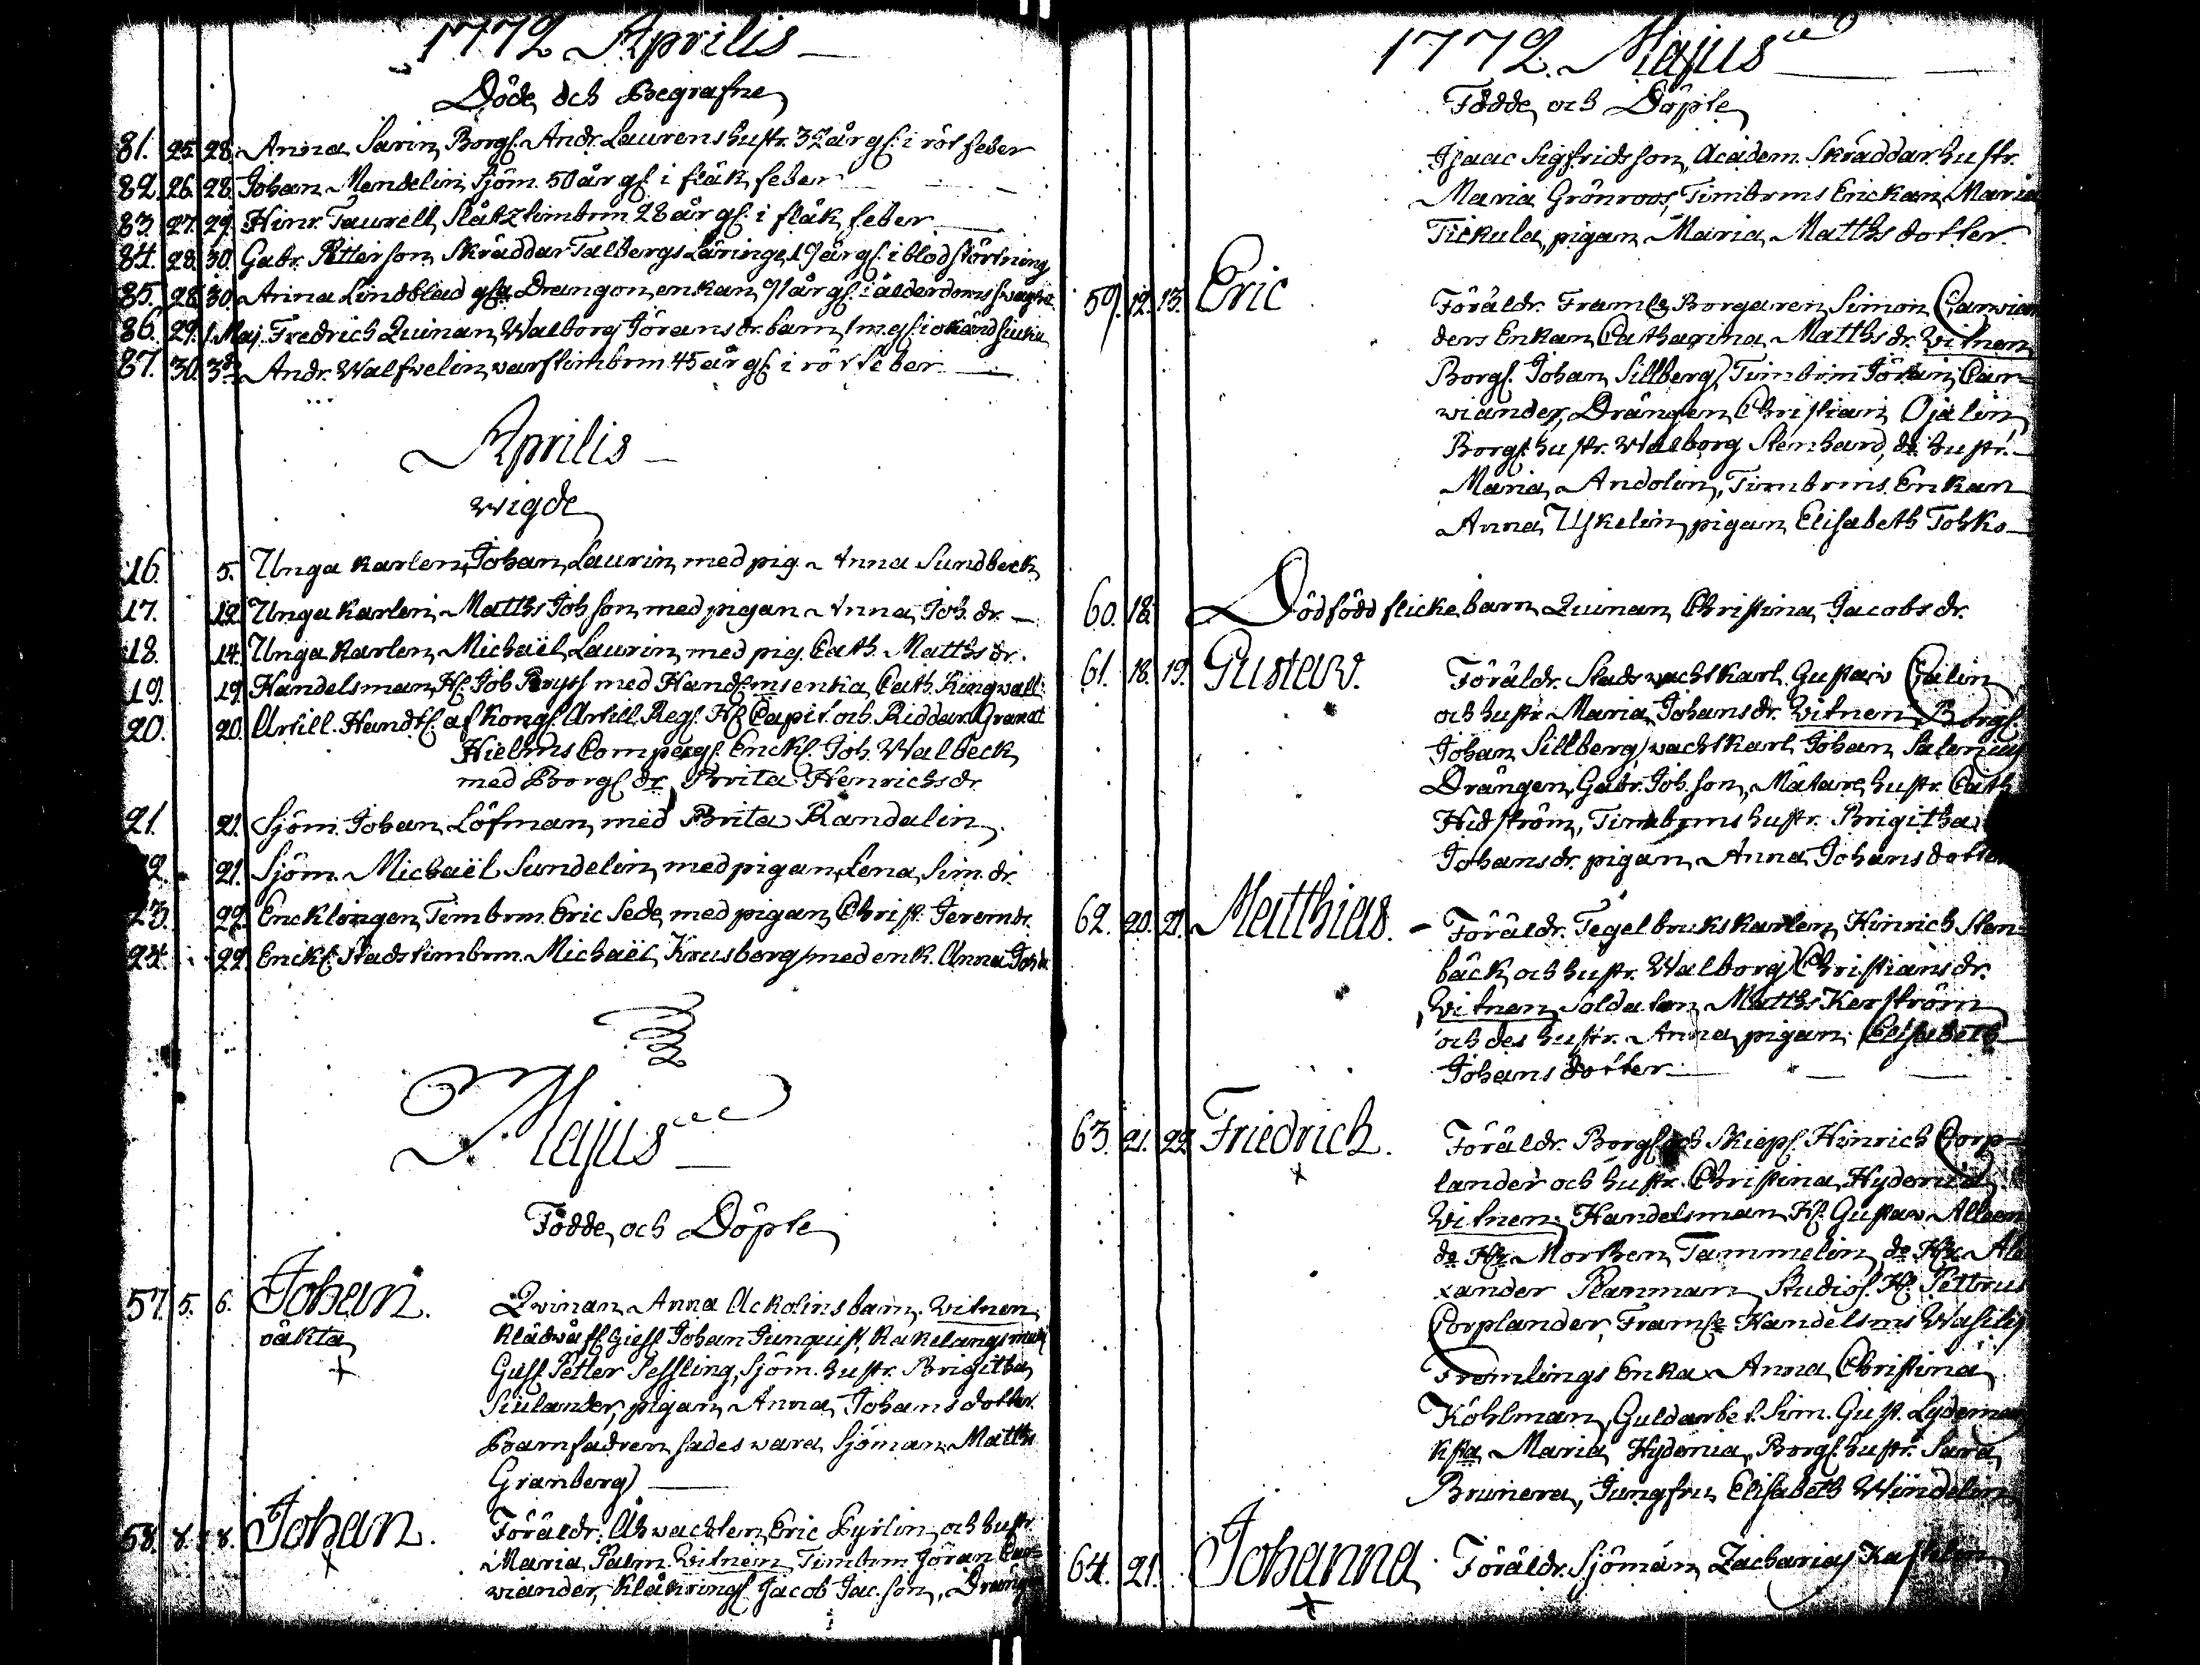 1772 Aprilis
Döde och Begrafne
81. 25. 28. Anna Sarin, Borg. Andr. Laurens hustr. 32 år g. i röt feber
82. 26. 28. Johan Mendelin Sjöm. 50 år g. i fläk feber
83. 27. 29. Hinr. Taurell, Slåtz timbrm 28 år g. i fläk feber
84. 28. 30. Gabr. Petterson Skräddar Talbergs Läringe 19 år g. i blodstörtning
85. 28. 30. Anna Lindblad Drangon enkan år g. i ålderdoms
86. 29. 1 Maj. Fredrich Quinan Walborg Jörans dr. barn, 1 m. g. i okänd siuka
87. 30. 3. Andr. Walfvelin varfstimbrm 45 år g. i röt feber
Aprilis
wigde
16. 5. Unga karlen Johan Laurin med pig. Anna Sundbeck
17. 12. Unga karlen Matths Joh. son med pigan Anna Joh. dr.
18. 14. Unga karlen Michaël Laurin med pig. Cath. Matths dr.
19. 19. Handelsman H. Joh. Pryss med Hand.ms enka Cath. Ringwall
20. 20. Artill. Handtl. af Kongl. Artill. Reg. H. Capit. och Riddar Granat
Hielms Comp. Enckl. Joh. Walbeck
med Borg. dr. Brita Henrichsdr.
21. 21. Sjöm. Johan Löfman med Brita Randalin
22. 21. Sjöm. Michaël Sundelin med pigan Lena Sim. dr.
23. 22. Encklingen Timbrm. Eric Sede med pigan Christ. Jerem dr.
24. 22. Enckl. Stads timbrm. Michaël Krusberg med enk. Anna Joh. dr.
Majus
Födde och Döpte
57. 5. 6. Johan. Qvinan Anna Ackolins barn. Witnen
oäkta Johan Junquist, Kakelangsmak.
Gess. Petter Sessling, Sjöm. hustr. Brigitha
Siulander, pigan Anna Johansdotter.
Barnfadren sades wara Sjöman Matths
Granberg
58. 8. 8. Johan. Föräldr. Åhwachten Eric Pyrlin och hustr.
Maria Palm. Witnen Timbrm Jöran Car=
wiander, Jacob Jac. son, Dräng
1772. Majus
Födde och Döpte
Isaac Sigfridsson, Academ. Skräddar hustr.
Maria Grönroos, Timbrms Enckan Maria
Tickula, pigan Maria Matths dotter.
59. 12. 13. Eric Föräldr. Framl. Borgaren Simon Carwian
ders Enkan Catharina Matths dr. Witnen
Borg. Johan Sillberg, Timbrm Jöran Car=
wiander, Drängen Christian Ojalin
Borg. hustr. Walborg Stenhard, do hustr.
Maria Andolin, Timbrms Enkan
Anna Uskelin, pigan Elisabeth Tohko
60. 18. Dödfödd flickebarn Quinan Christina Jacobs dr.
61. 18. 19. Gustaw. Föräldr. Stads wacht karl. Gustaw Calin
och hustr. Maria Johans dr. Witnen Borg.
Johan Sillberg, wachtkarl Johan Salenius
Drängen Gabr. Joh. son, Mätare hustr. Cath.
Hidström, Timbrms hustr. Brigitha
Johans dr. pigan Anna Johans dotter
62. 20. 21. Matthias. Föräldr. Tegelbrukskarlen Hinrich Sten=
bäck och hustr. Walborg Christians dr.
Witnen Soldaten Matths Kerström
och des hustr. Anna, pigan Elisabeth
Johans dotter
63. 21. 22. Friedrich. Föräldr. Borg. och Skiep. Hinrich Corp=
lander och hustr. Christina Hydenia
Witnen Handelsman H. Gustaw Alleen
do Hr. Morthen Tammelin, do Hr. Ale
xander Planman, Studios. H. Petrus
Corplander, Framl. Handelsms Wasilij
Fremlings Enka Anna Christina
Köhlman, Guldarbet. Sim. Gust. Lydeman
Maria Hydenia, Borg. hustr. Sara
Brunera, Jungfru Elisabeth Windelin
64. 21. Johanna. Föräldr. Sjöman Zacharias